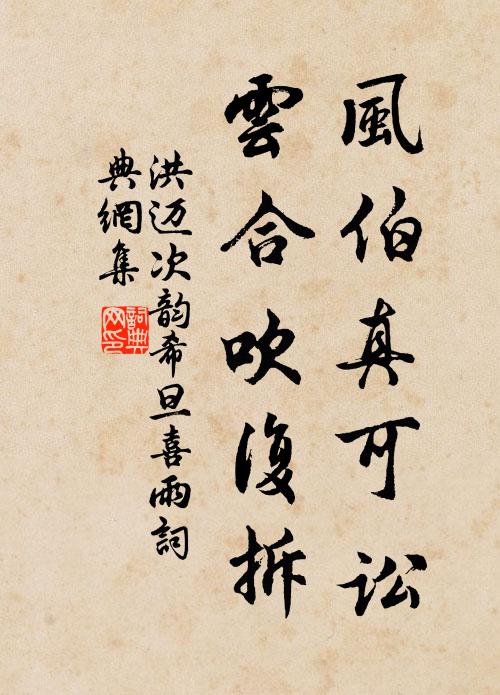 風伯真可讼
雲合吹復拆
洪迈次韵希旦喜雨詞
典網集
詞典网印